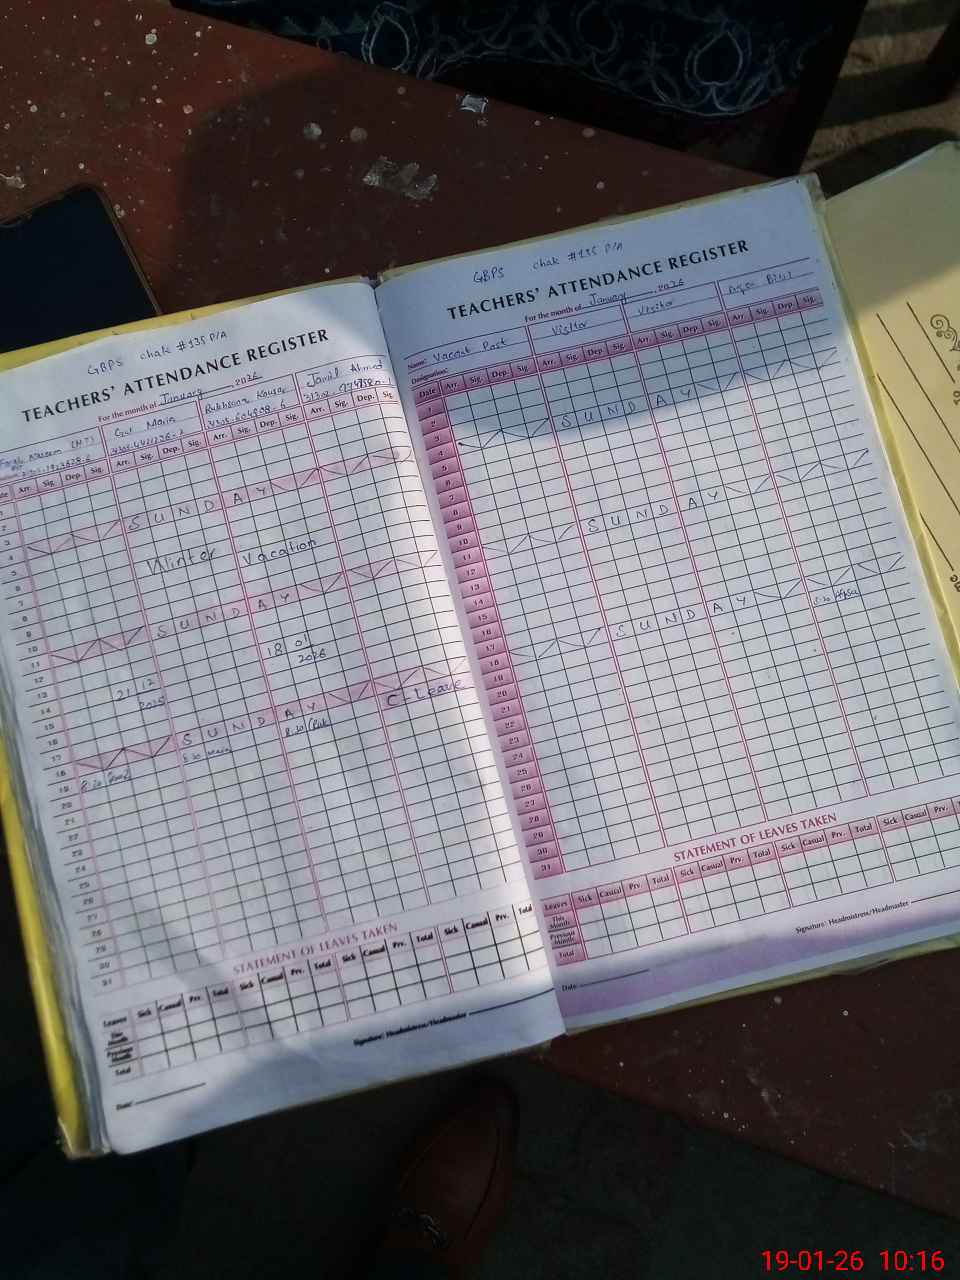 GBPS chak #135 P/A
TEACHERS' ATTENDANCE REGISTER
For the month of January, 2026
Gul Maria
Jamil Ahmed
Date Arr. Sig. Dep. Sig. Arr. Sig. Dep. Sig. Arr. Sig. Dep. Sig. Arr. Sig. Dep. Sig.
1
2
3
4
SUNDAY
5
6
Winter Vacation
7
8
9
10
11
SUNDAY
12
13
14
21 12 2025
18 01 2026
15
16
17
18
SUNDAY
C-Leave
19
8:20
8:20
8:20
20
21
22
23
24
25
26
27
28
29
30
31
STATEMENT OF LEAVES TAKEN
Leaves Sick Casual Prv. Total Sick Casual Prv. Total Sick Casual Prv. Total Sick Casual Prv. Total
This Month
Previous Month
Total
Signature: Headmistress/Headmaster
Date:
GBPS chak #135 P/A
TEACHERS' ATTENDANCE REGISTER
For the month of January, 2026
Name: Vacant Post Visitor Visitor
Designation:
Date Arr. Sig. Dep. Sig. Arr. Sig. Dep. Sig. Arr. Sig. Dep. Sig. Arr. Sig. Dep. Sig.
1
2
3
4
SUNDAY
5
6
7
8
9
10
11
SUNDAY
12
13
14
15
16
17
18
SUNDAY
19
8:20 Afsa
20
21
22
23
24
25
26
27
28
29
30
31
STATEMENT OF LEAVES TAKEN
Leaves Sick Casual Prv. Total Sick Casual Prv. Total Sick Casual Prv. Total Sick Casual Prv.
This Month
Previous Month
Total
Signature: Headmistress/Headmaster
Date:
19-01-26 10:16